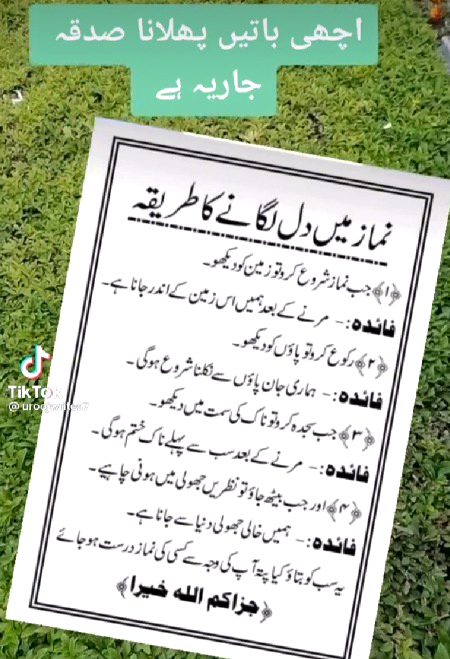 اچھی باتیں پھلانا صدقہ
جاریہ ہے
نماز میں دل لگانے کا طریقہ
﴿۱﴾ جب نماز شروع کرو تو زمین کو دیکھو۔
فائدہ:- مرنے کے بعد ہمیں اس زمین کے اندر جانا ہے۔
﴿۲﴾ رکوع کرو تو پاؤں کو دیکھو۔
فائدہ:- ہماری جان پاؤں سے نکلنا شروع ہوگی۔
﴿۳﴾ جب سجدہ کرو تو ناک کی سمت میں دیکھو۔
فائدہ:- مرنے کے بعد سب سے پہلے ناک ختم ہوگی۔
﴿۴﴾ اور جب بیٹھ جاؤ تو نظریں جھولی میں ہونی چاہیے۔
فائدہ:- ہمیں خالی جھولی دنیا سے جانا ہے۔
یہ سب کو بتاؤ کیا پتہ آپ کی وجہ سے کسی کی نماز درست ہو جائے
﴿جزاکم الله خیرا﴾
TikTok